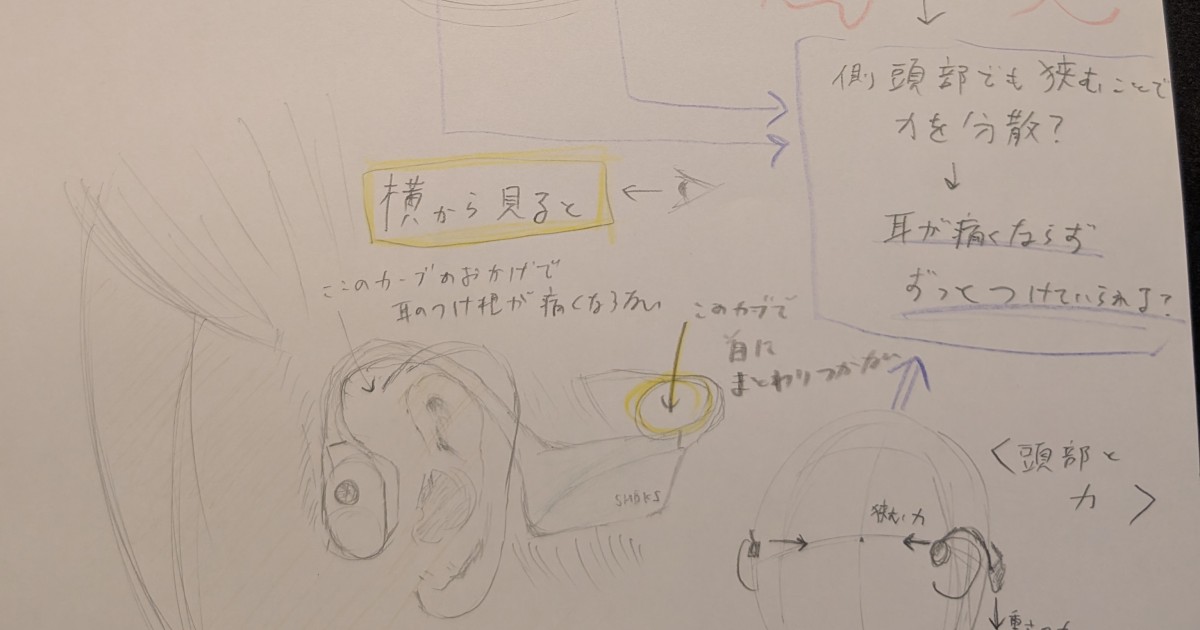 側頭部でも狭むことで
力を分散?
↓
耳が痛くならず
ずっとつけていられる?
横から見ると
ここのカーブのおかげで
耳のつけ根が痛くならない
このカーブで
首に
まとわりつかない
SHOKS
<頭部と
力>
狭む力